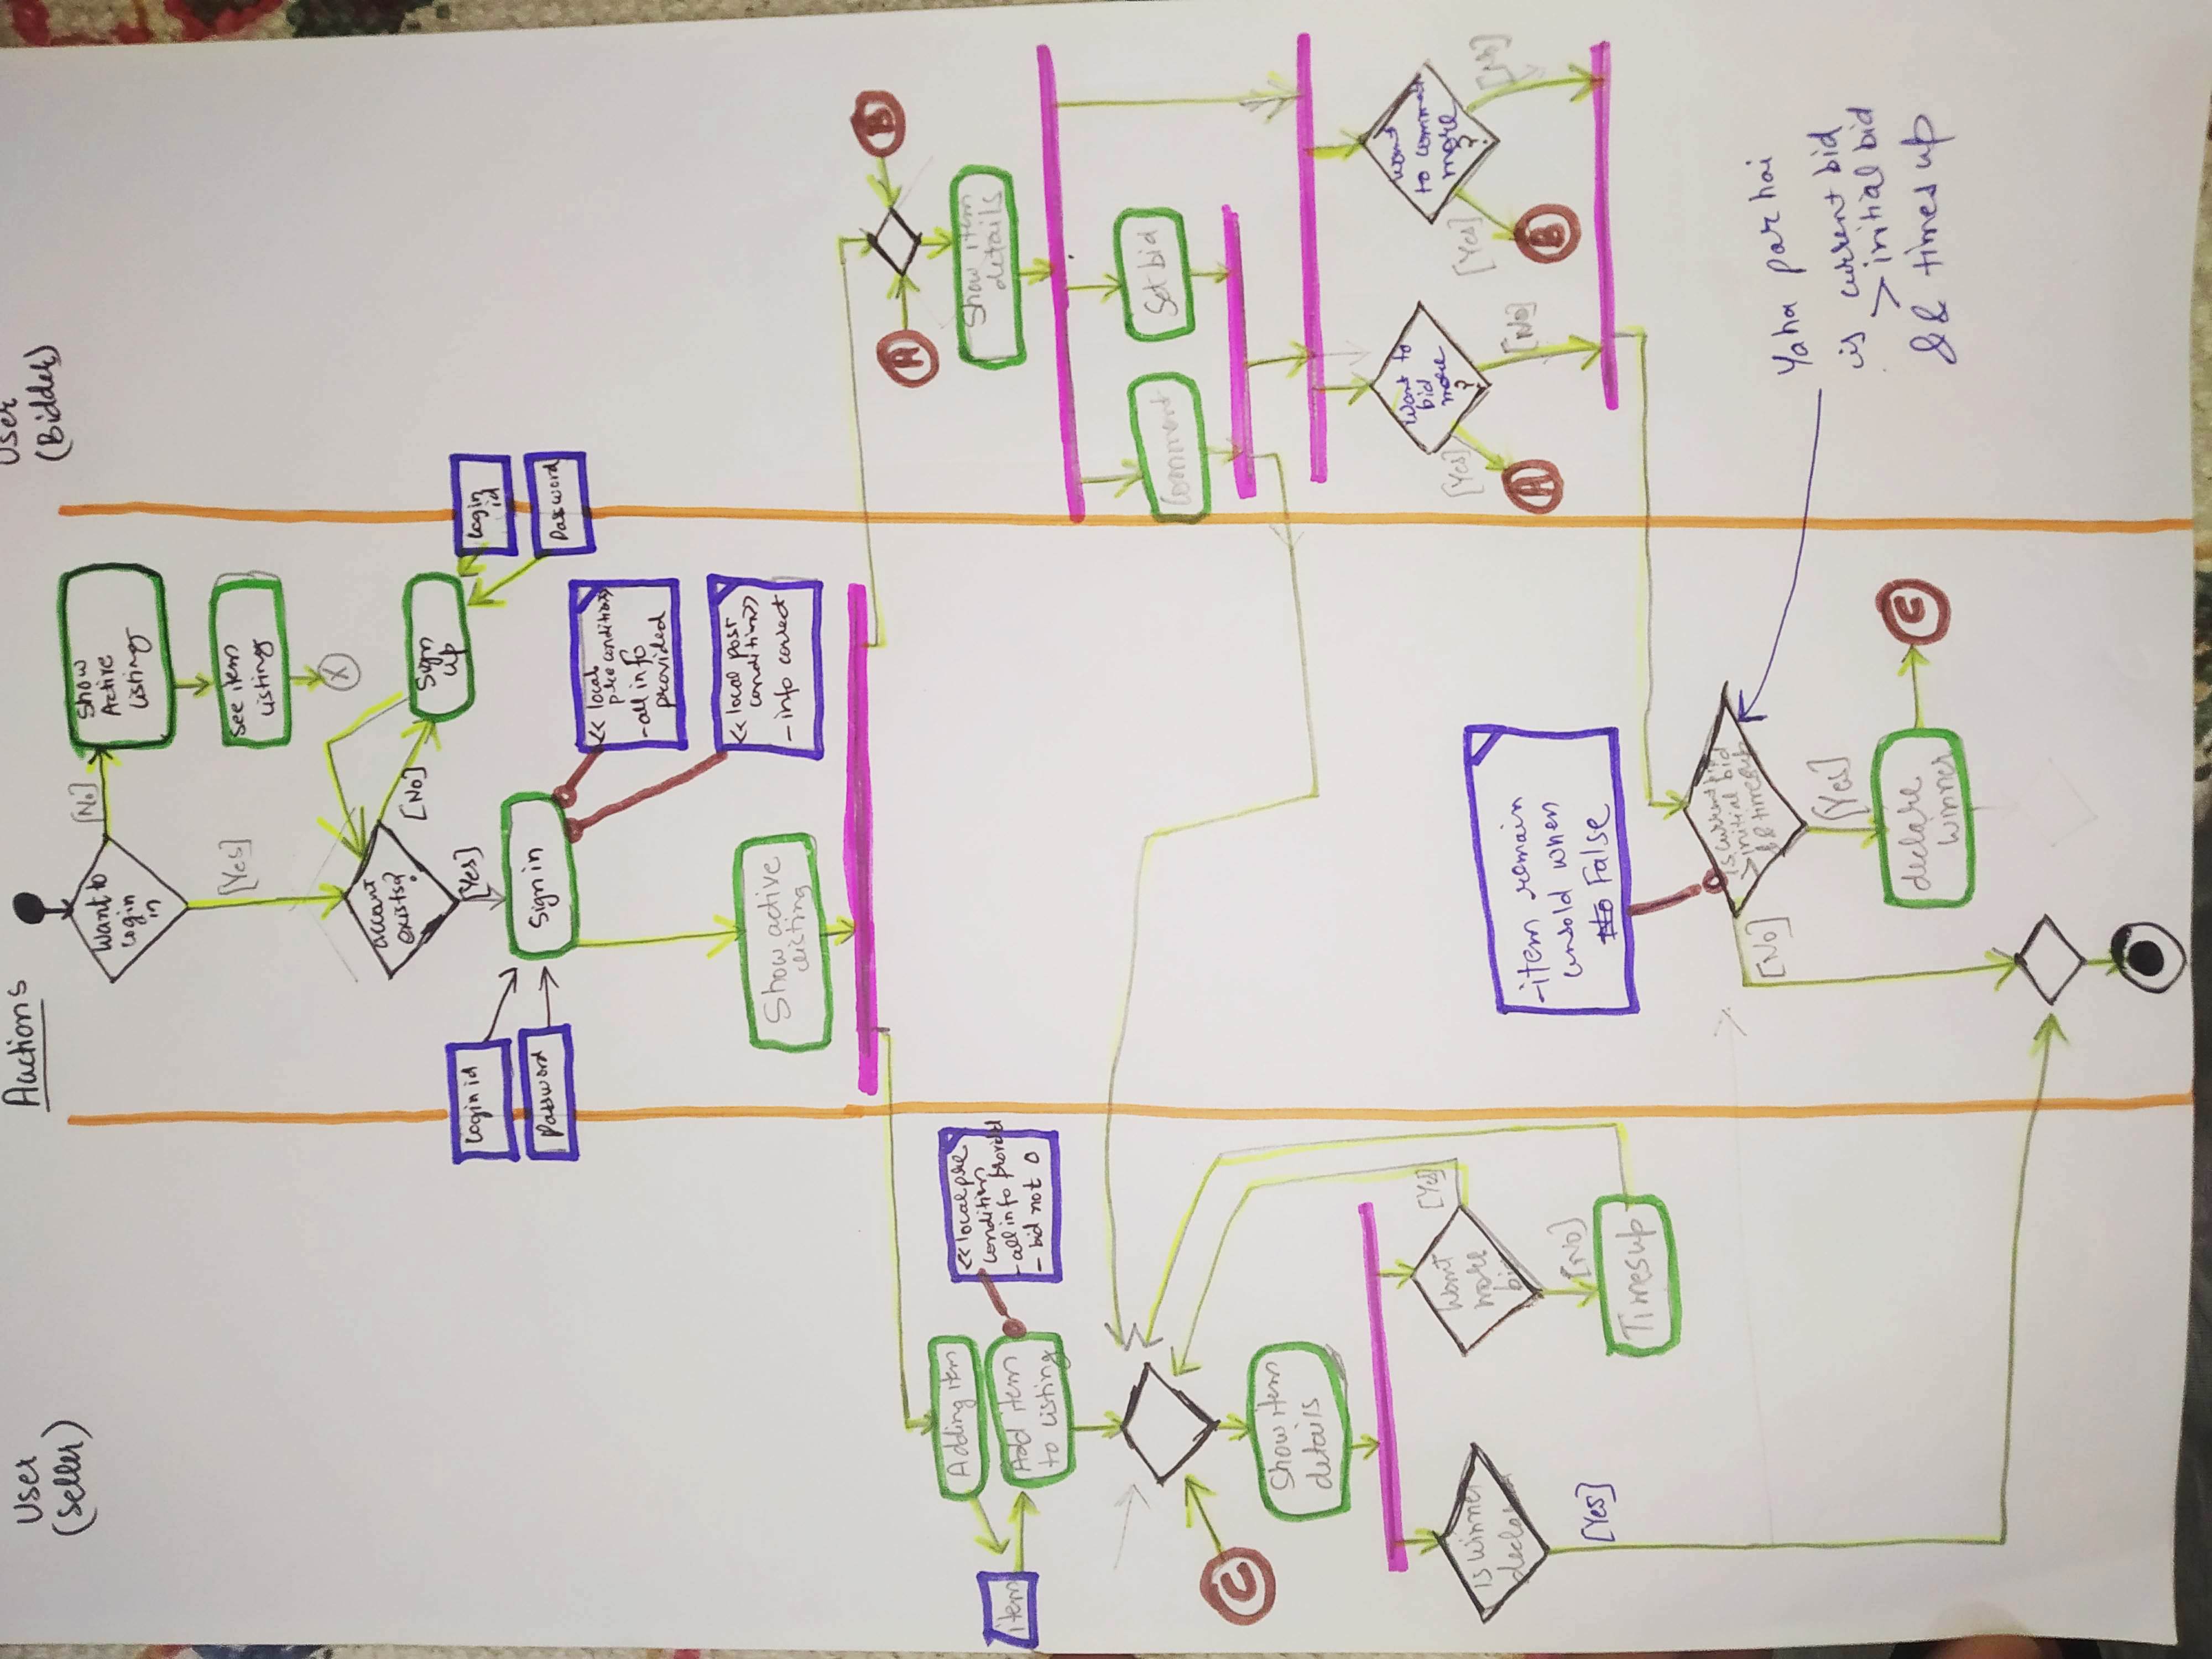 User
(Seller)
Auctions
User
(Bidder)
Want to
login
in
[No]
Show
Active
Listing
[Yes]
See item
Listing
X
account
exists?
[No]
Sign
up
[Yes]
Login id
Password
Sign in
Login
id
Password
<< local
pre condition>>
- all info
provided
<< local post
condition>>
- info correct
Show active
listing
A
B
Adding item
item
Add item
to Listing
<< local pre
condition
- all info provided
- bid not 0
Show item
details
Comment
Set bid
C
Show item
details
Is winner
declared
Want
more
bid
[Yes]
[Yes]
[NO]
Timesup
Want to
bid
more
?
[Yes]
[No]
A
want
to comment
more
?
[Yes]
[No]
B
- item remain
unsold when
False
is current bid
> initial bid
&& timesup
[No]
[Yes]
declare
winner
C
Yaha par hai
is current bid
> initial bid
&& times up